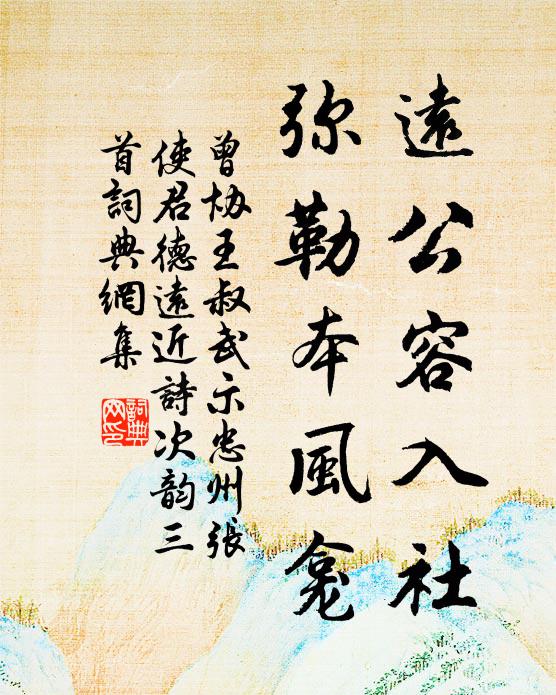 遠公容入社
弥勒本風龛
曾協王叔武示忠州張
使君德遠近詩次韵三
首詞典網集
詞典
网印